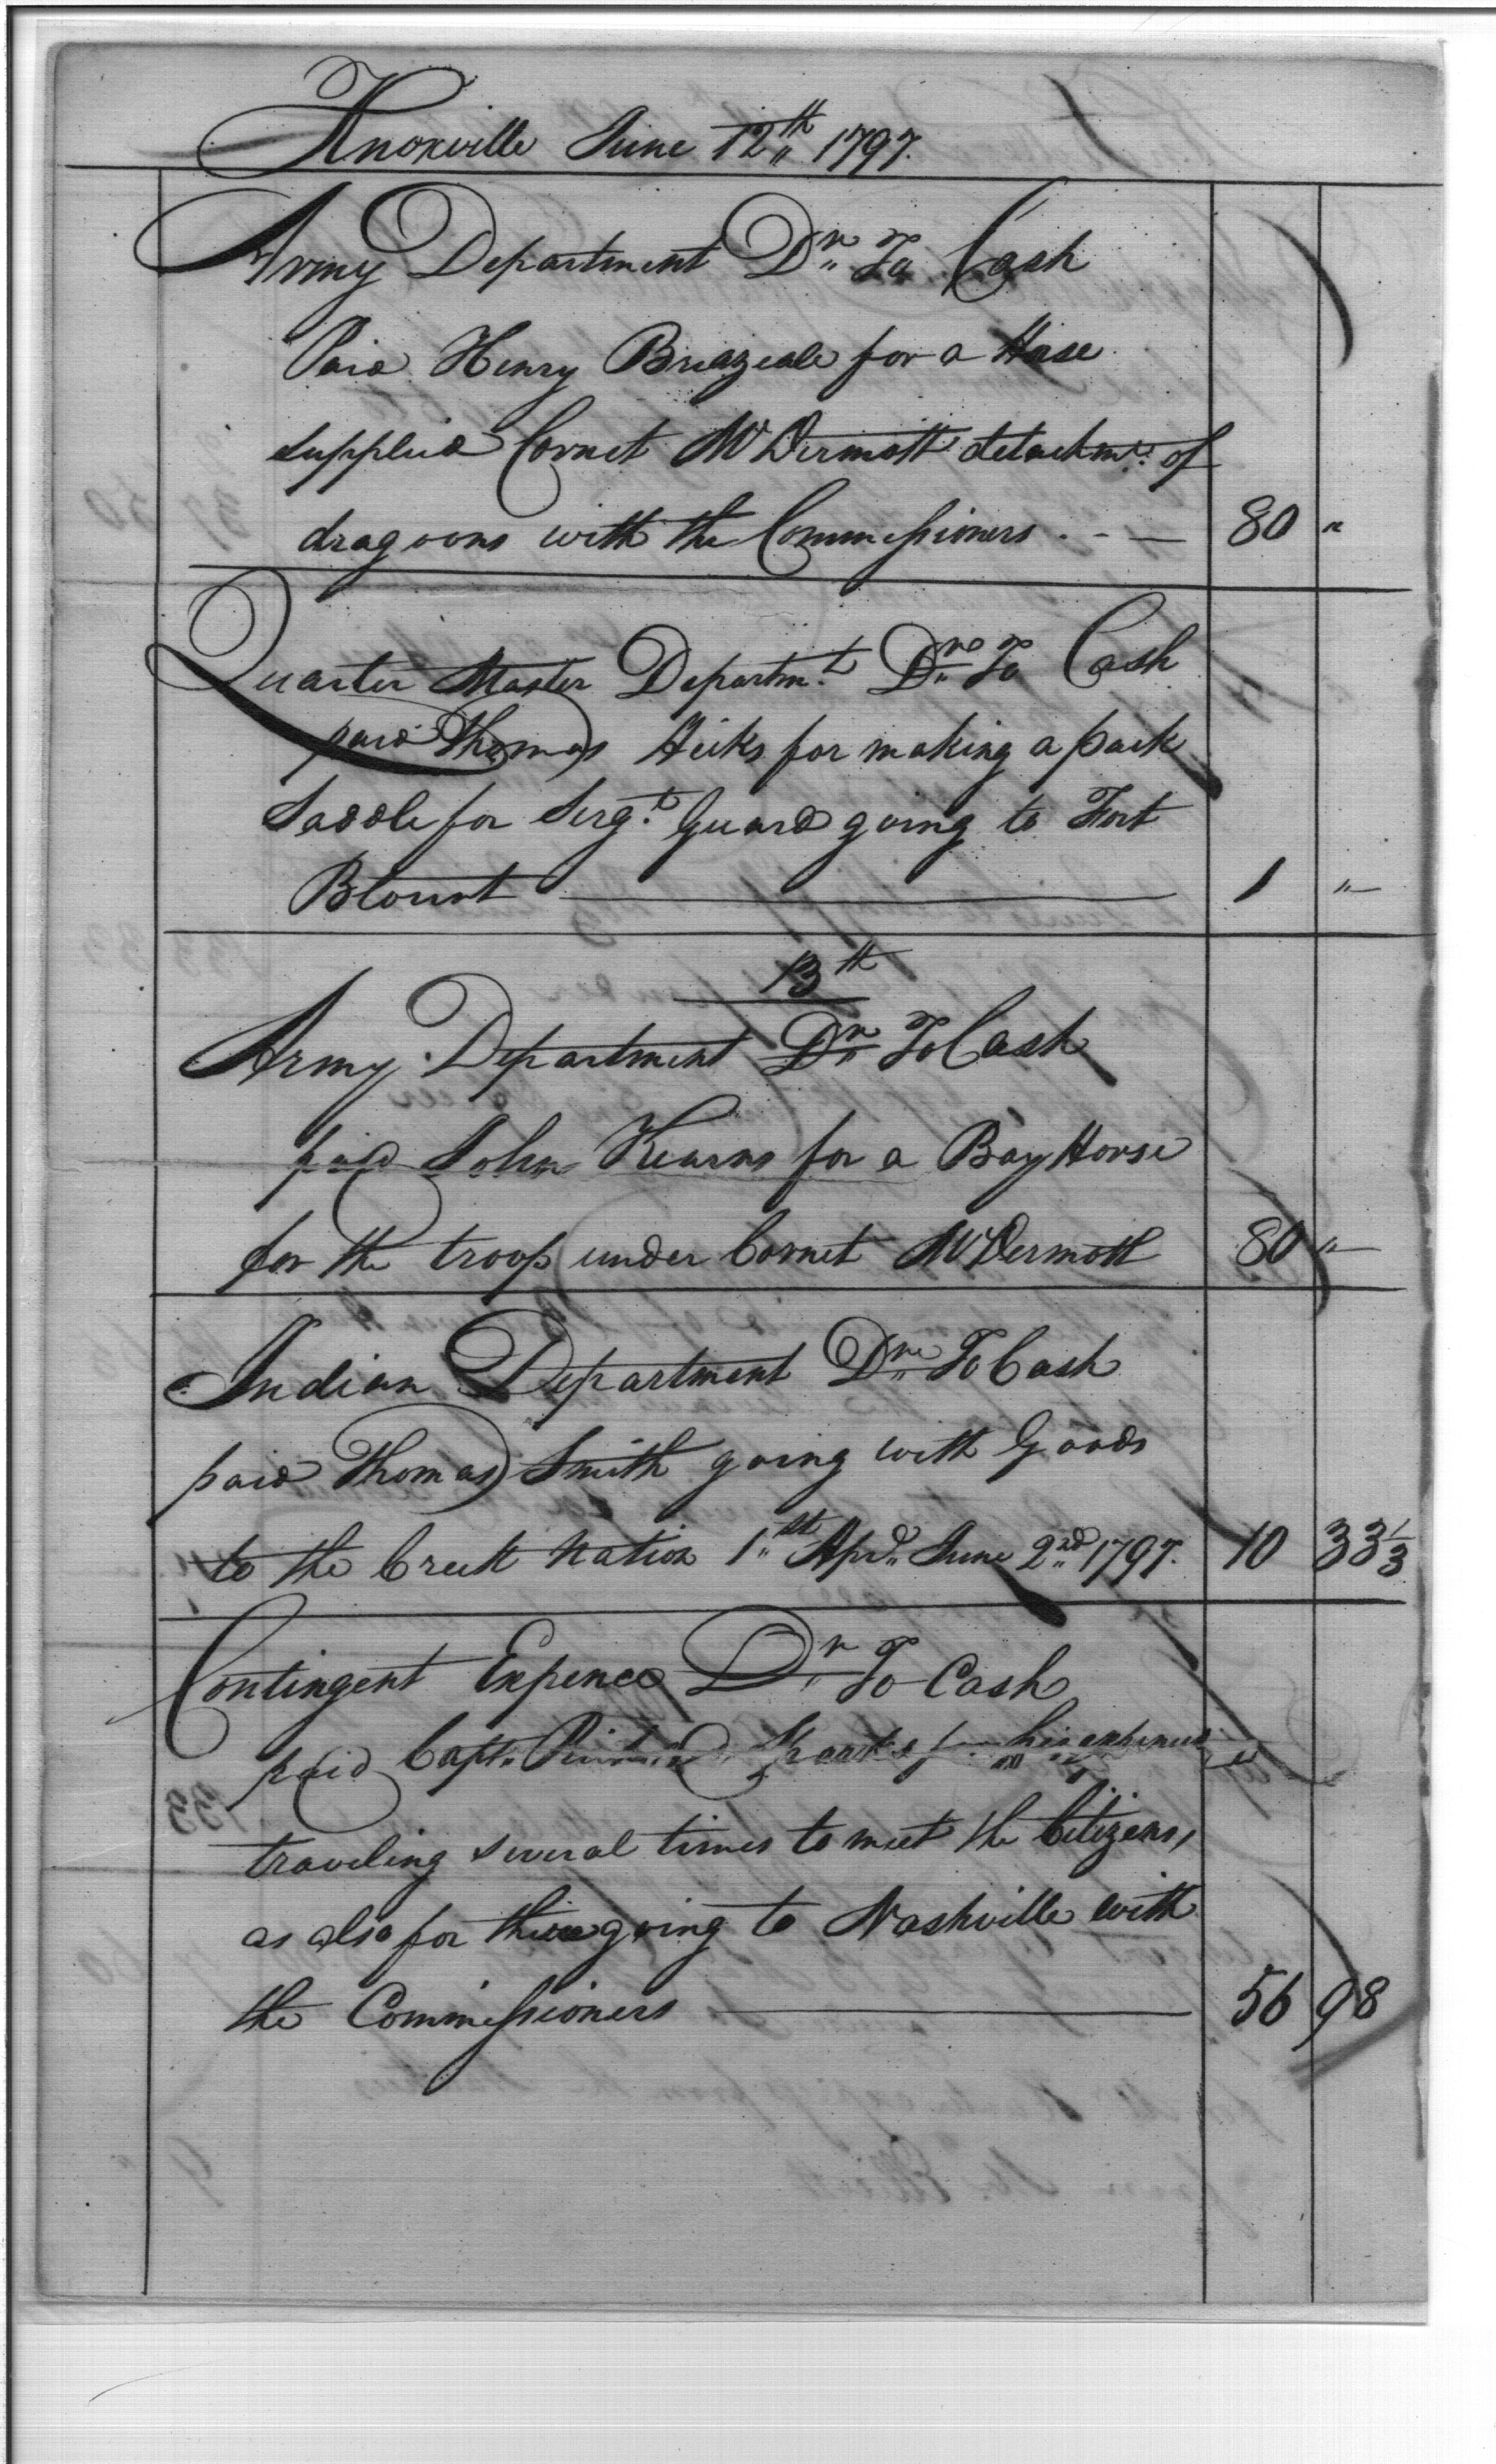 Knoxville June 12th 1797.
Army Department Dr. To Cash
Paid Henry Breazeale for a Horse
supplied Cornet McDermott detachmt. of
dragoons with the Commissioners . - — 80 "
Quarter Master Departmt. Dr. To Cash
paid Thomas Hicks for making a pack
Saddle for Sergt. Guard going to Fort
Blount — 1 "
13th
Army Department Dr. To Cash
paid John Kearns for a Bay Horse
for the troop under Cornet McDermott 80 "
Indian Department Dr. To Cash
paid Thomas Smith going with Goods
to the Creek Nation 1st Apl. June 2nd 1797. 10 33 1/3
Contingent Expence Dr. To Cash
paid Capt. Richard Sparks for his expences
traveling several times to meet the Citizens,
as also for going to Nashville with
the Commissioners — 56 98